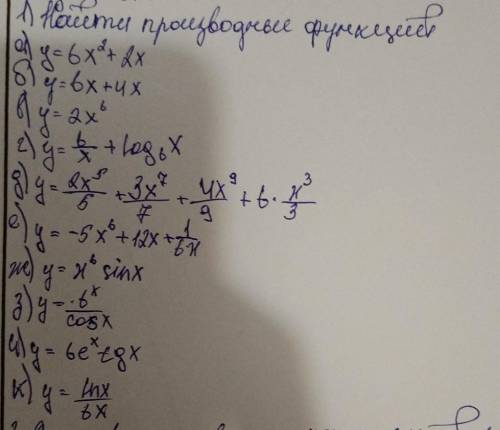 1) Найти производные функций
а) y = 6x² + 2x
б) y = 6x + 4x
в) y = 2x⁶
г) y = 6/x + log₆x
д) y = 2x⁵/5 + 3x⁷/7 + 4x⁹/9 + 6 · x³/3
е) y = -5x⁶ + 12x + 1/6x
ж) y = x⁶ sinx
з) y = 6ˣ/cosx
и) y = 6eˣ tgx
к) y = lnx/6x